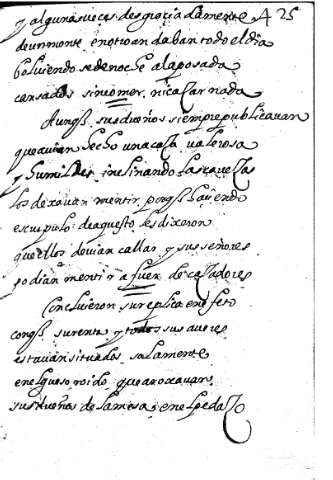 y algunas veces, desgraciadamente 425
de un monte en otro andaban todo el dia
bolviendo se de noche a la posada
cansados sin comer, ni caçar nada
Aunq̃ sus dueños siempre publicavan
que avian hecho una caça valerosa
y humildes inclinando las caveças
los dexavan mentir porq̃ haviendo
escrupulo de aquesto les dixeron
que ellos devian callar y sus señores
podian mentir a fuer de caçadores
Concluieron su replica en efeto
conq̃ su renta y todos sus averes
estavan situados solamente
en el gueso roido que aroxavan
sus dueños de la mesa, en el pedaço